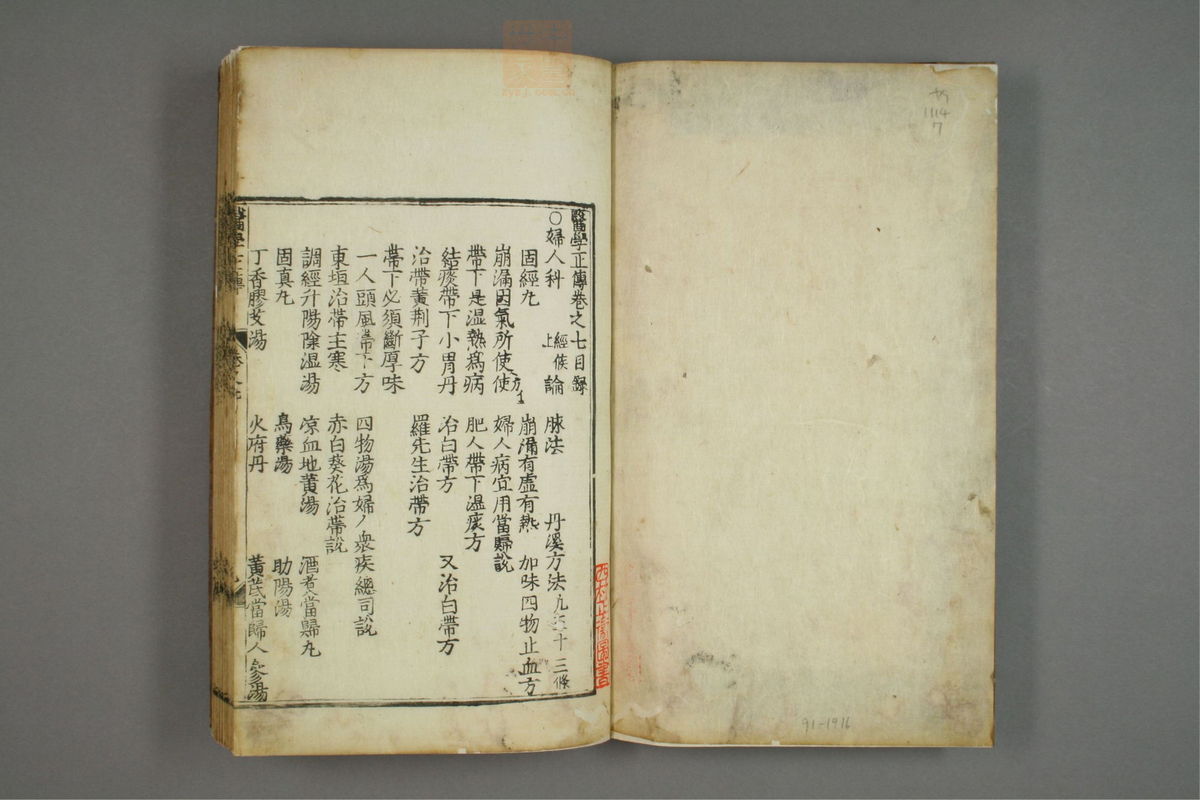 ヤ9
1114
7
醫學正傳卷之七目録
○婦人科 經候論上 脉法 丹溪方法凡五十三條
固經丸 崩漏有虛有熱 加味四物止血方
崩漏因氣所使使方 婦人病宜用當歸說
帶下是湿熱爲病 肥人帶下湿痰方
結痰帶下小胃丹 治白帶方 又治白帶方
治帶黄荆子方 羅先生治帶方
帶下必須斷厚味
一人頭風帶下方 四物湯爲婦人衆疾總司說
東垣治帶主寒 赤白葵花治帶說
調經升陽除湿湯 凉血地黄湯 酒煮當歸丸
固真丸 烏藥湯 助陽湯
丁香膠艾湯 火府丹 黄芪當歸人參湯
醫學正傳 卷之七
圖書
91-1916